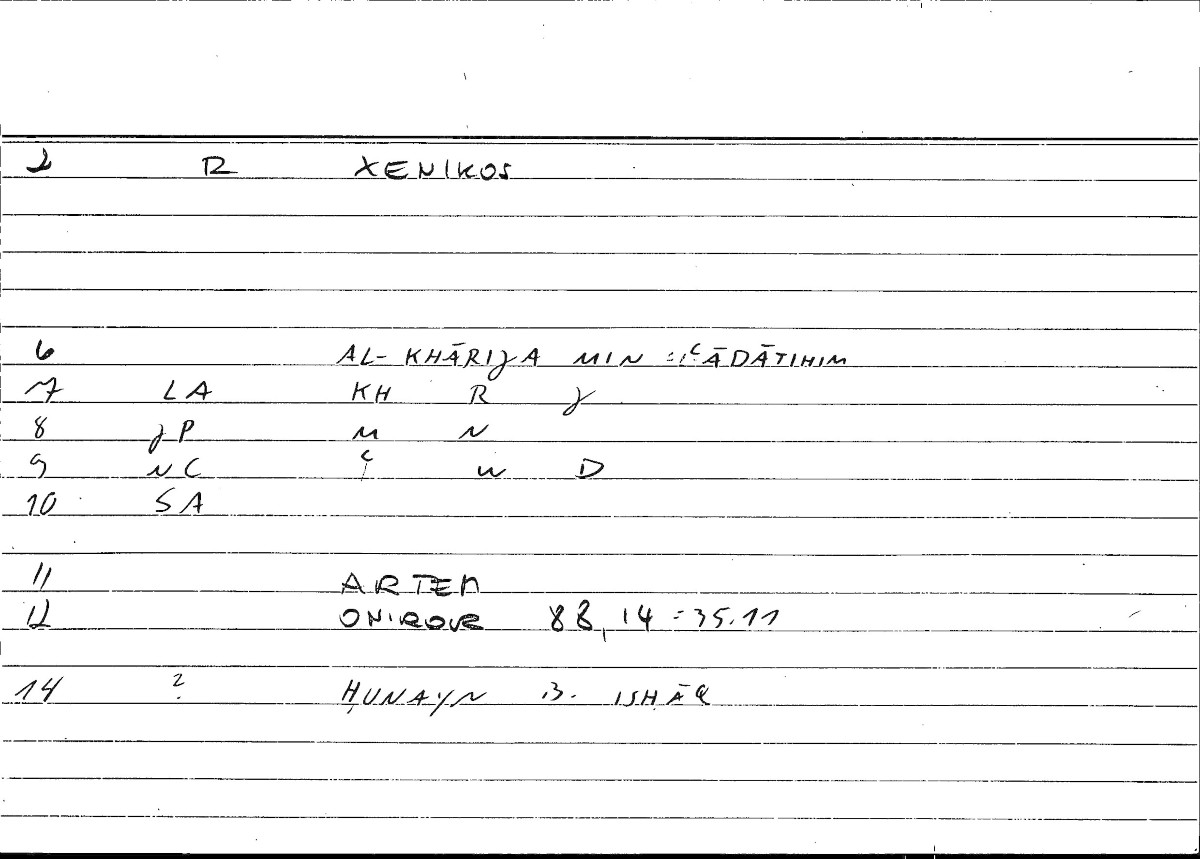 2 R XENIKOS
6 AL-KHĀRIJA MIN ʿĀDĀTIHIM
7 LA KH R J
8 JP M N
9 NC ʿ W D
10 SA
11 ARTEM
12 ONIROCR 88,14 = 35.11
14 ? ḤUNAYN B. ISḤĀQ